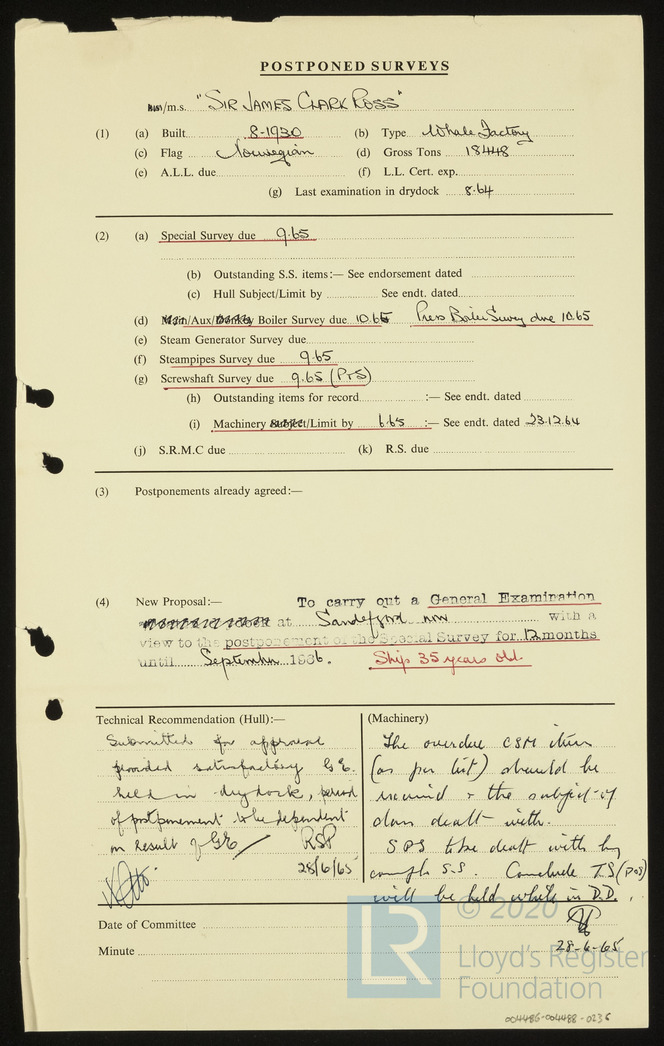 POSTPONED SURVEYS
/m.s. "SIR JAMES CLARK ROSS"
(1) (a) Built 8-1930 (b) Type Whale Factory
(c) Flag Norwegian (d) Gross Tons 18448
(e) A.L.L. due (f) L.L. Cert. exp.
(g) Last examination in drydock 8.64
(2) (a) Special Survey due 9.65
(b) Outstanding S.S. items:— See endorsement dated
(c) Hull Subject/Limit by See endt. dated
(d) Main/Aux/Donkey Boiler Survey due 10.65 Press Boiler Survey due 10.65
(e) Steam Generator Survey due
(f) Steampipes Survey due 9.65
(g) Screwshaft Survey due 9.65 (P+S)
(h) Outstanding items for record :— See endt. dated
(i) Machinery Subject/Limit by 6.65 :— See endt. dated 23.12.64
(j) S.R.M.C due (k) R.S. due
(3) Postponements already agreed:—
(4) New Proposal:— To carry out a General Examination
at Sandefjord now with a
view to the postponement of the Special Survey for 12 months
until September 1966. Ship 35 years old.
Technical Recommendation (Hull):— (Machinery)
Submitted for approval
provided satisfactory G.E.
held in drydock, period
of postponement to be dependent
on result of GE
RSP
28/6/65
The overdue CSM items
(as per list) should be
examined & the subject of
class dealt with.
SPS to be dealt with by
compln S.S. Complete T.S (P&S)
will be held while in D.D.
28-6-65
Date of Committee
Minute
© 2020
LR
Lloyd's Register
Foundation
004486-004488-0236